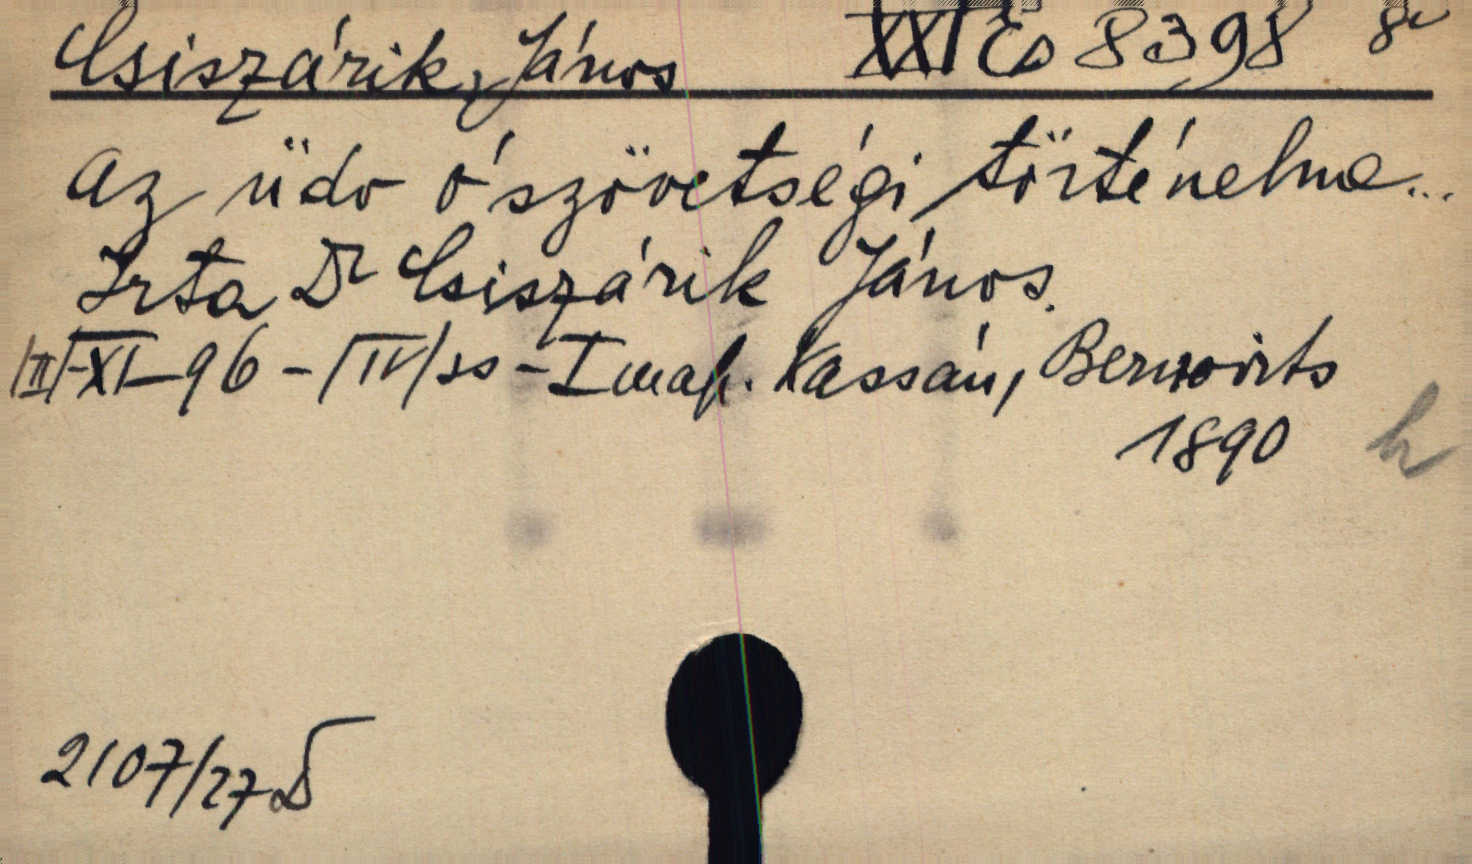 Csiszárik, János XXI Es 8398 8º
az üdo ószövetségi történelme...
Irta Dr Csiszárik János.
/III/-XI-96-/IV/ss-I map. Kassán, Bernovits
1890
2107/27